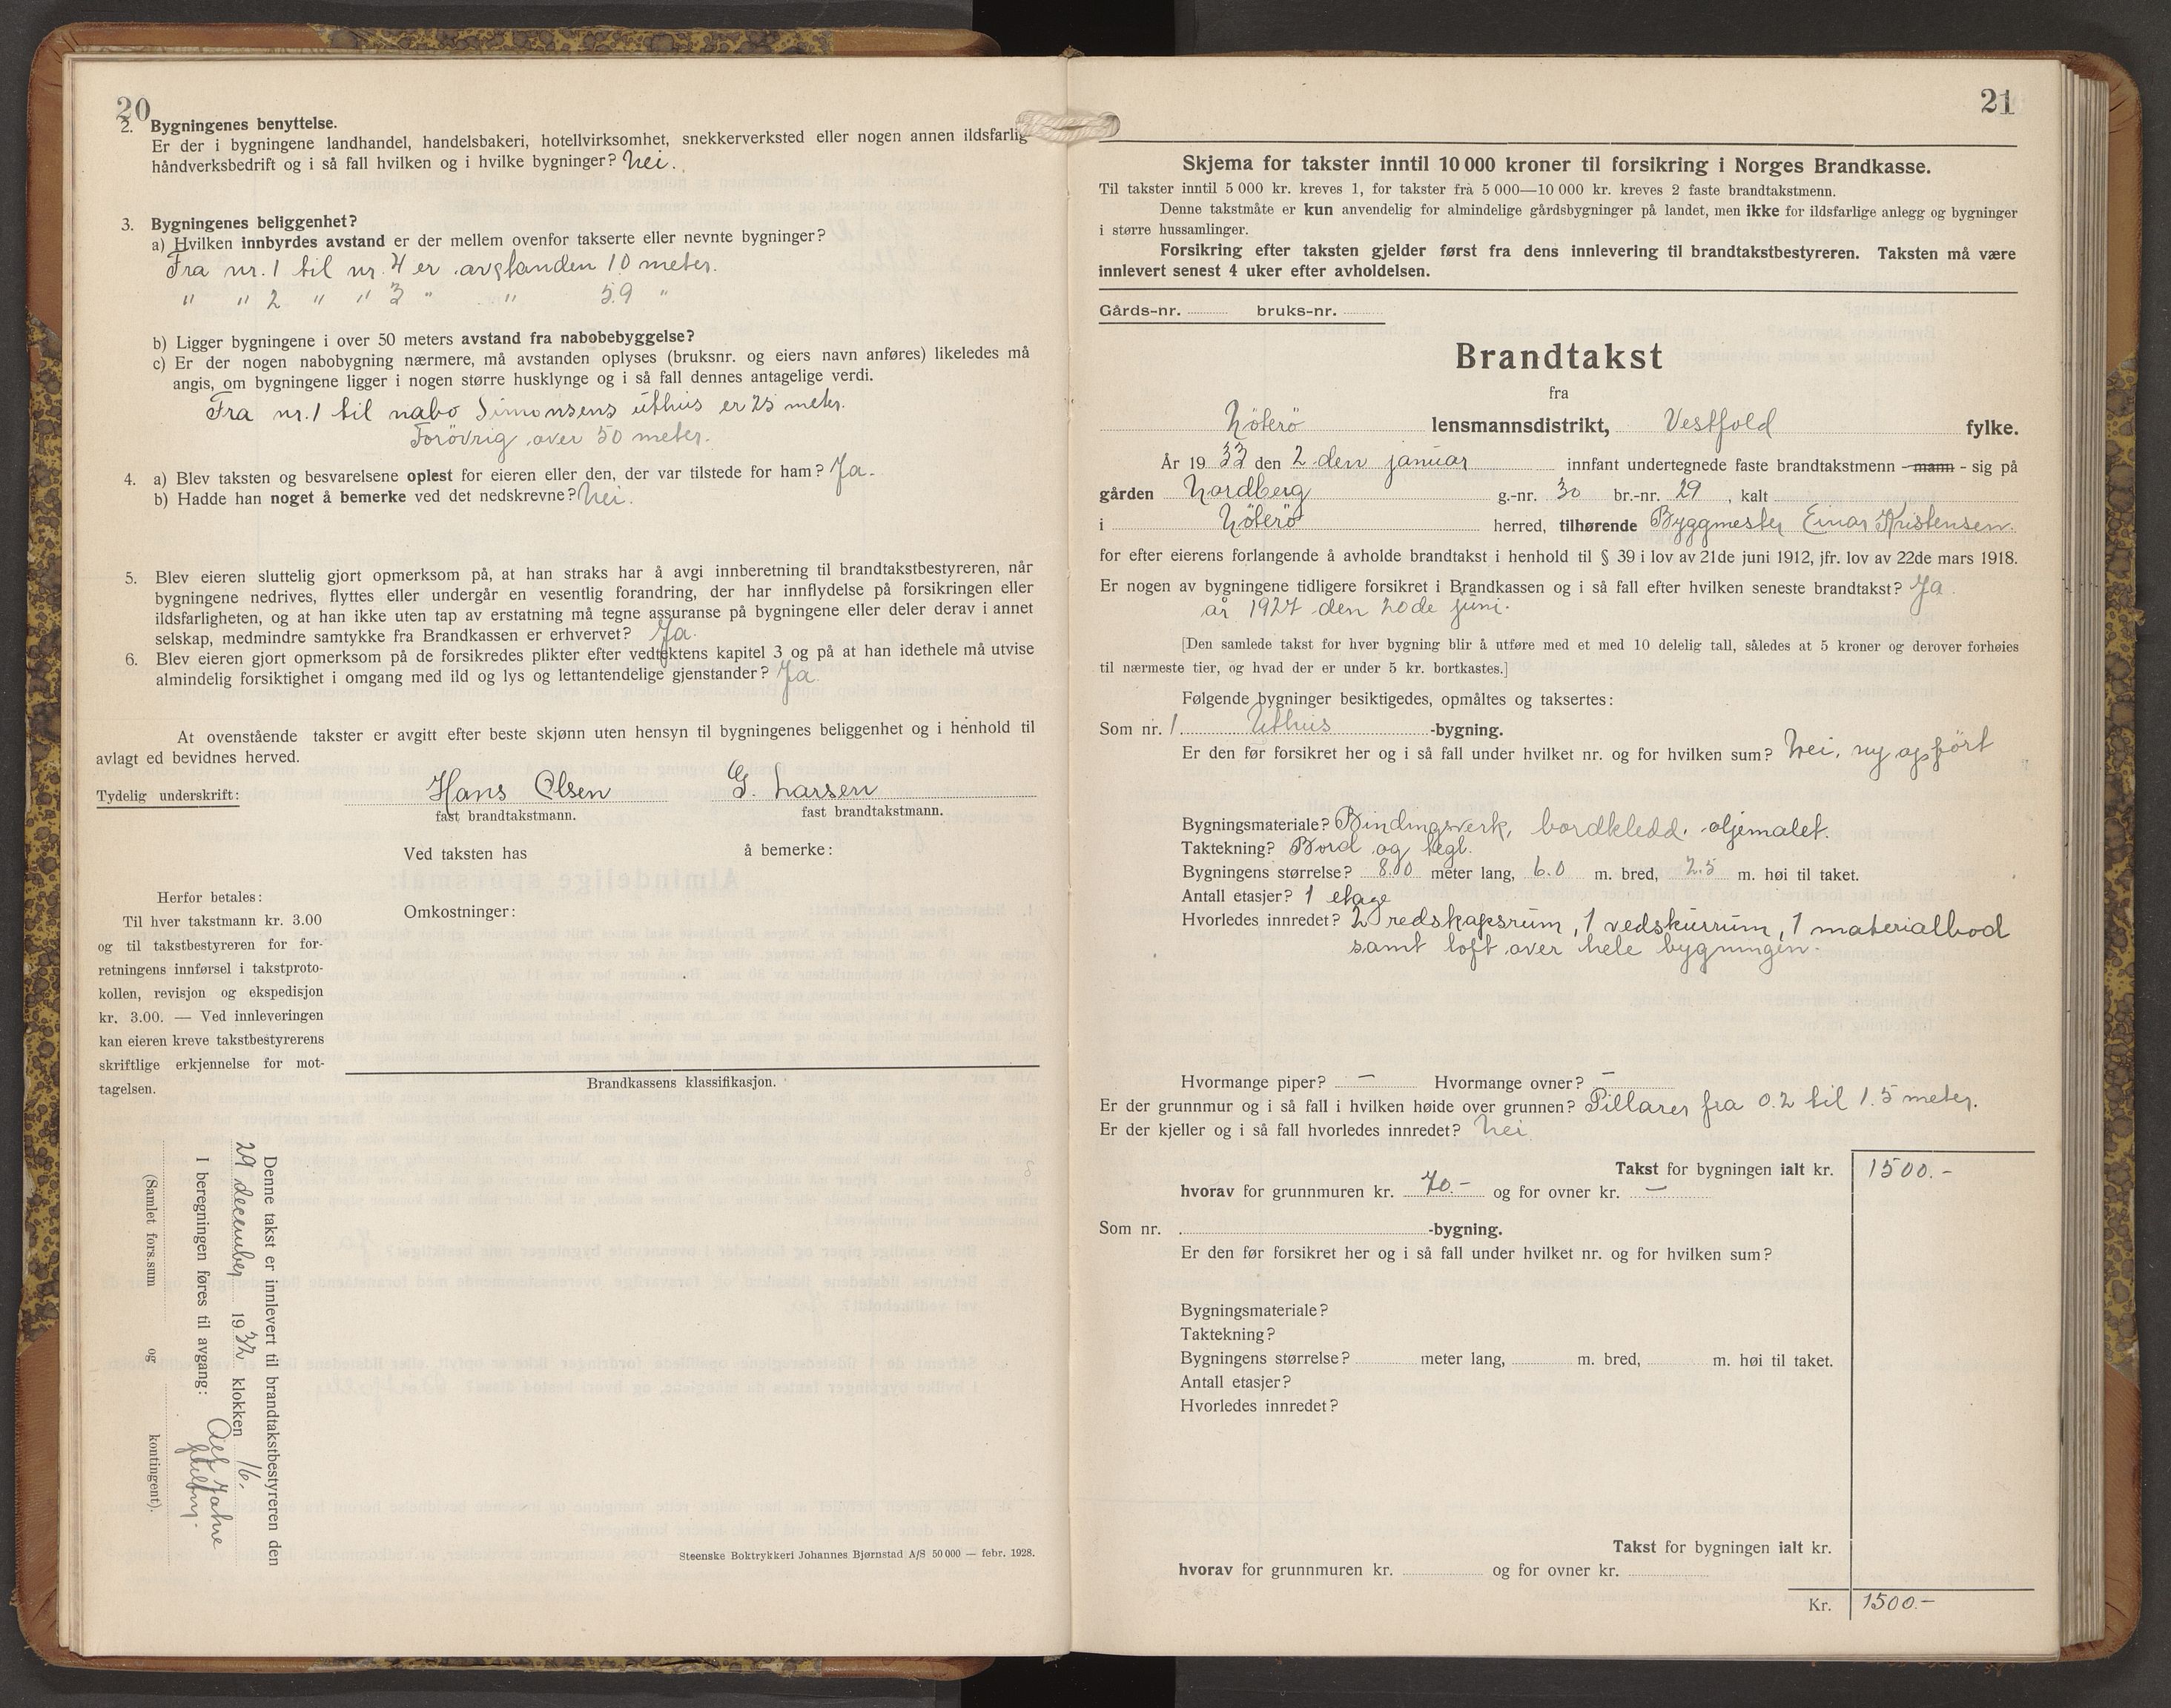 20
2. Bygningenes benyttelse.
Er der i bygningene landhandel, handelsbakeri, hotellvirksomhet, snekkerverksted eller nogen annen ildsfarlig
håndverksbedrift og i så fall hvilken og i hvilke bygninger? Nei.
3. Bygningenes beliggenhet?
a) Hvilken innbyrdes avstand er der mellem ovenfor takserte eller nevnte bygninger?
Fra nr. 1 til nr. 4 er avstanden 10 meter.
" " 2 " " 3 " " 5.9 "
b) Ligger bygningene i over 50 meters avstand fra nabobebyggelse?
c) Er der nogen nabobygning nærmere, må avstanden oplyses (bruksnr. og eiers navn anføres) likeledes må
angis, om bygningene ligger i nogen større husklynge og i så fall dennes antagelige verdi.
Fra nr. 1 til nabo Simonsens uthus er 25 meter.
Forövrig over 50 meter.
4. a) Blev taksten og besvarelsene oplest for eieren eller den, der var tilstede for ham? Ja.
b) Hadde han noget å bemerke ved det nedskrevne? Nei.
5. Blev eieren sluttelig gjort opmerksom på, at han straks har å avgi innberetning til brandtakstbestyreren, når
bygningene nedrives, flyttes eller undergår en vesentlig forandring, der har innflydelse på forsikringen eller
ildsfarligheten, og at han ikke uten tap av erstatning må tegne assuranse på bygningene eller deler derav i annet
selskap, medmindre samtykke fra Brandkassen er erhvervet? Ja.
6. Blev eieren gjort opmerksom på de forsikredes plikter efter vedtektens kapitel 3 og på at han idethele må utvise
almindelig forsiktighet i omgang med ild og lys og lettantendelige gjenstander? Ja.
At ovenstående takster er avgitt efter beste skjønn uten hensyn til bygningenes beliggenhet og i henhold til
avlagt ed bevidnes herved.
Tydelig underskrift: Hans Olsen G. Larsen
fast brandtakstmann. fast brandtakstmann.
Ved taksten has å bemerke:
Omkostninger:
Herfor betales:
Til hver takstmann kr. 3.00
og til takstbestyreren for for-
retningens innførsel i takstproto-
kollen, revisjon og ekspedisjon
kr. 3.00. — Ved innleveringen
kan eieren kreve takstbestyrerens
skriftlige erkjennelse for mot-
tagelsen.
Brandkassens klassifikasjon.
Denne takst er innlevert til brandtakstbestyreren den
29 december 1932 klokken 16.
I beregningen føres til avgang:
(Samlet fors.sum og kontingent).
Steenske Boktrykkeri Johannes Bjørnstad A/S 50 000 — febr. 1928.
21
Skjema for takster inntil 10 000 kroner til forsikring i Norges Brandkasse.
Til takster inntil 5 000 kr. kreves 1, for takster fra 5 000—10 000 kr. kreves 2 faste brandtakstmenn.
Denne takstmåte er kun anvendelig for almindelige gårdsbygninger på landet, men ikke for ildsfarlige anlegg og bygninger
i større hussamlinger.
Forsikring efter taksten gjelder først fra dens innlevering til brandtakstbestyreren. Taksten må være
innlevert senest 4 uker efter avholdelsen.
Gårds-nr. bruks-nr.
Brandtakst
fra
Nöterö lensmannsdistrikt, Vestfold fylke.
År 1933 den 2 den januar innfant undertegnede faste brandtakstmenn - mann - sig på
gården Nordberg g.-nr. 30 br.-nr. 29, kalt
i Nöterö herred, tilhørende Byggmester Einar Kristensen.
for efter eierens forlangende å avholde brandtakst i henhold til § 39 i lov av 21de juni 1912, jfr. lov av 22de mars 1918.
Er nogen av bygningene tidligere forsikret i Brandkassen og i så fall efter hvilken seneste brandtakst? Ja
år 1927 den 20de juni.
[Den samlede takst for hver bygning blir å utføre med et med 10 delelig tall, således at 5 kroner og derover forhøies
til nærmeste tier, og hvad der er under 5 kr. bortkastes.]
Følgende bygninger besiktigedes, opmåltes og taksertes:
Som nr. 1. Uthus -bygning.
Er den før forsikret her og i så fall under hvilket nr. og for hvilken sum? Nei, ny opfört
Bygningsmateriale? Bindingsverk, bordkledd. oljemalet.
Taktekning? Bord og tegl.
Bygningens størrelse? 8.00 meter lang, 6.0 m. bred, 2.5 m. høi til taket.
Antall etasjer? 1 etage
Hvorledes innredet? 2 redskapsrum, 1 vedskurrum, 1 materialbod
samt loft over hele bygningen.
Hvormange piper? — Hvormange ovner? —
Er der grunnmur og i så fall i hvilken høide over grunnen? Pillarer fra 0.2 til 1.5 meter.
Er der kjeller og i så fall hvorledes innredet? Nei
Takst for bygningen ialt kr. 1500.-
hvorav for grunnmuren kr. 70.- og for ovner kr. —
Som nr. -bygning.
Er den før forsikret her og i så fall under hvilket nr. og for hvilken sum?
Bygningsmateriale?
Taktekning?
Bygningens størrelse? meter lang, m. bred, m. høi til taket.
Antall etasjer?
Hvorledes innredet?
Takst for bygningen ialt kr.
hvorav for grunnmuren kr. og for ovner kr.
Kr. 1500.-